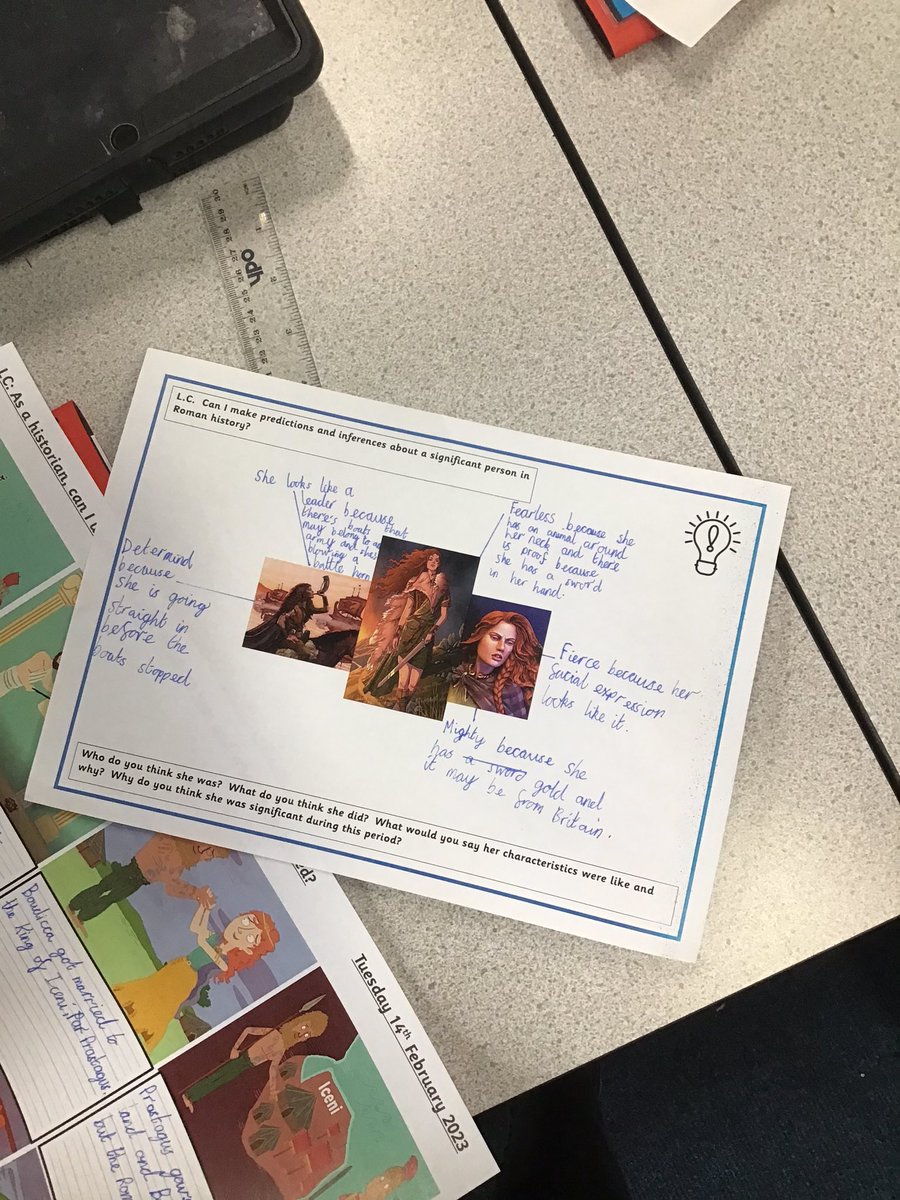 L.C. Can I make predictions and inferences about a significant person in
Roman history?
She looks like a
leader because
there's boats that
may belong to an
army and she's
blowing a
battle horn
Fearless because she
has an animal around
her neck and there
is proof because
she has a sword
in her hand.
Determind
because
she is going
straight in
before the
boats stopped
Fierce because her
facial expression
looks like it.
Mighty because she
has a sword gold and
it may be from Britain.
Who do you think she was? What do you think she did? What would you say her characteristics were like and
why? Why do you think she was significant during this period?
odh
30 29 28 27 26 25 24 23 22
L.C: As a historian, can I
Tuesday 14th February 2023
Boudicca got married to
the King of Iceni, Prastagus.
Iceni
Prastagus gave
and and
but the Rom